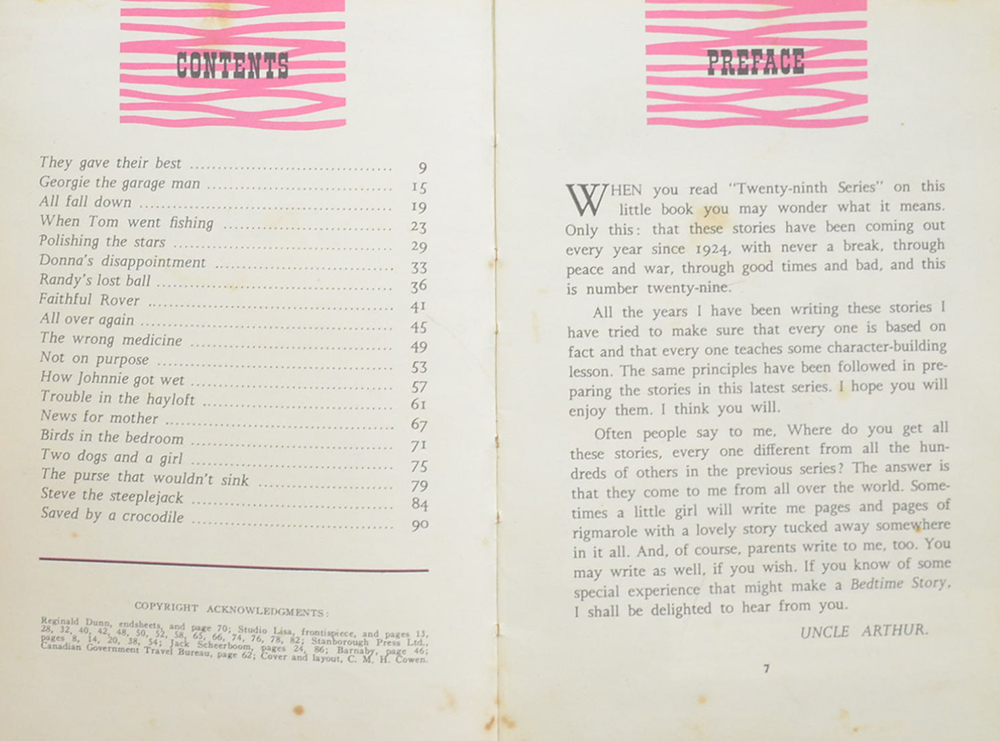 CONTENTS
They gave their best ........................................ 9
Georgie the garage man ........................................ 15
All fall down ........................................ 19
When Tom went fishing ........................................ 23
Polishing the stars ........................................ 29
Donna's disappointment ........................................ 33
Randy's lost ball ........................................ 36
Faithful Rover ........................................ 41
All over again ........................................ 45
The wrong medicine ........................................ 49
Not on purpose ........................................ 53
How Johnnie got wet ........................................ 57
Trouble in the hayloft ........................................ 61
News for mother ........................................ 67
Birds in the bedroom ........................................ 71
Two dogs and a girl ........................................ 75
The purse that wouldn't sink ........................................ 79
Steve the steeplejack ........................................ 84
Saved by a crocodile ........................................ 90
COPYRIGHT ACKNOWLEDGMENTS:
Reginald Dunn, endsheets, and page 70; Studio Lisa, frontispiece, and pages 13,
28, 32, 40, 42, 48, 50, 52, 58, 65, 66, 74, 76, 78, 82; Stanborough Press Ltd.,
pages 8, 14, 20, 38, 54; Jack Scheerboom, pages 24, 86; Barnaby, page 46;
Canadian Government Travel Bureau, page 62; Cover and layout, C. M. H. Cowen.
PREFACE
WHEN you read "Twenty-ninth Series" on this
little book you may wonder what it means.
Only this: that these stories have been coming out
every year since 1924, with never a break, through
peace and war, through good times and bad, and this
is number twenty-nine.
All the years I have been writing these stories I
have tried to make sure that every one is based on
fact and that every one teaches some character-building
lesson. The same principles have been followed in pre-
paring the stories in this latest series. I hope you will
enjoy them. I think you will.
Often people say to me, Where do you get all
these stories, every one different from all the hun-
dreds of others in the previous series? The answer is
that they come to me from all over the world. Some-
times a little girl will write me pages and pages of
rigmarole with a lovely story tucked away somewhere
in it all. And, of course, parents write to me, too. You
may write as well, if you wish. If you know of some
special experience that might make a Bedtime Story,
I shall be delighted to hear from you.
UNCLE ARTHUR.
7